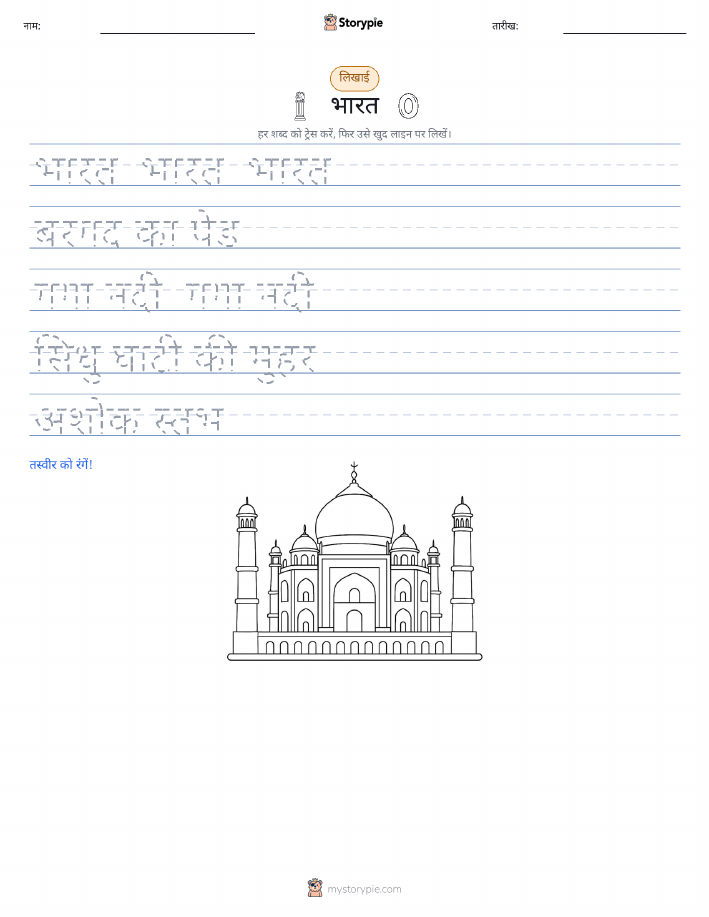 नाम:
Storypie
तारीख:
लिखाई
भारत
हर शब्द को ट्रेस करें, फिर उसे खुद लाइन पर लिखें।
भारत भारत भारत
बरगद का पेड
गगा नदी गगा नदी
सिधु घाटी की मुहर
अशोक स्तभ
तस्वीर को रंगें!
mystorypie.com